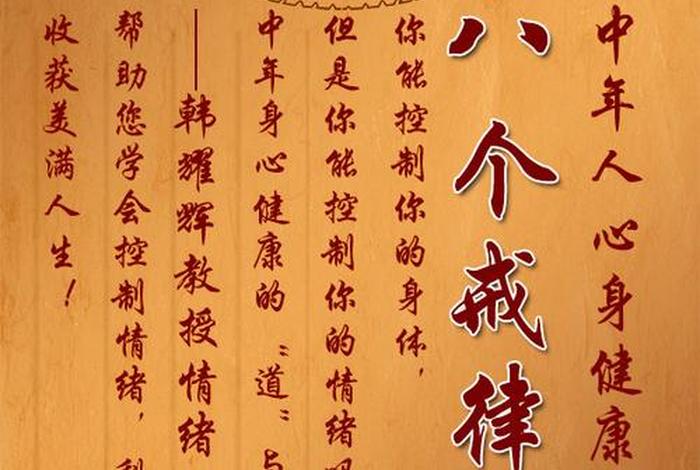 中年人心身健康
八个戒律
你能控制你的身体，
但是你能控制你的情绪吗
中年身心健康的“道”与
——韩耀辉教授情绪
帮助您学会控制情绪，
收获美满人生！